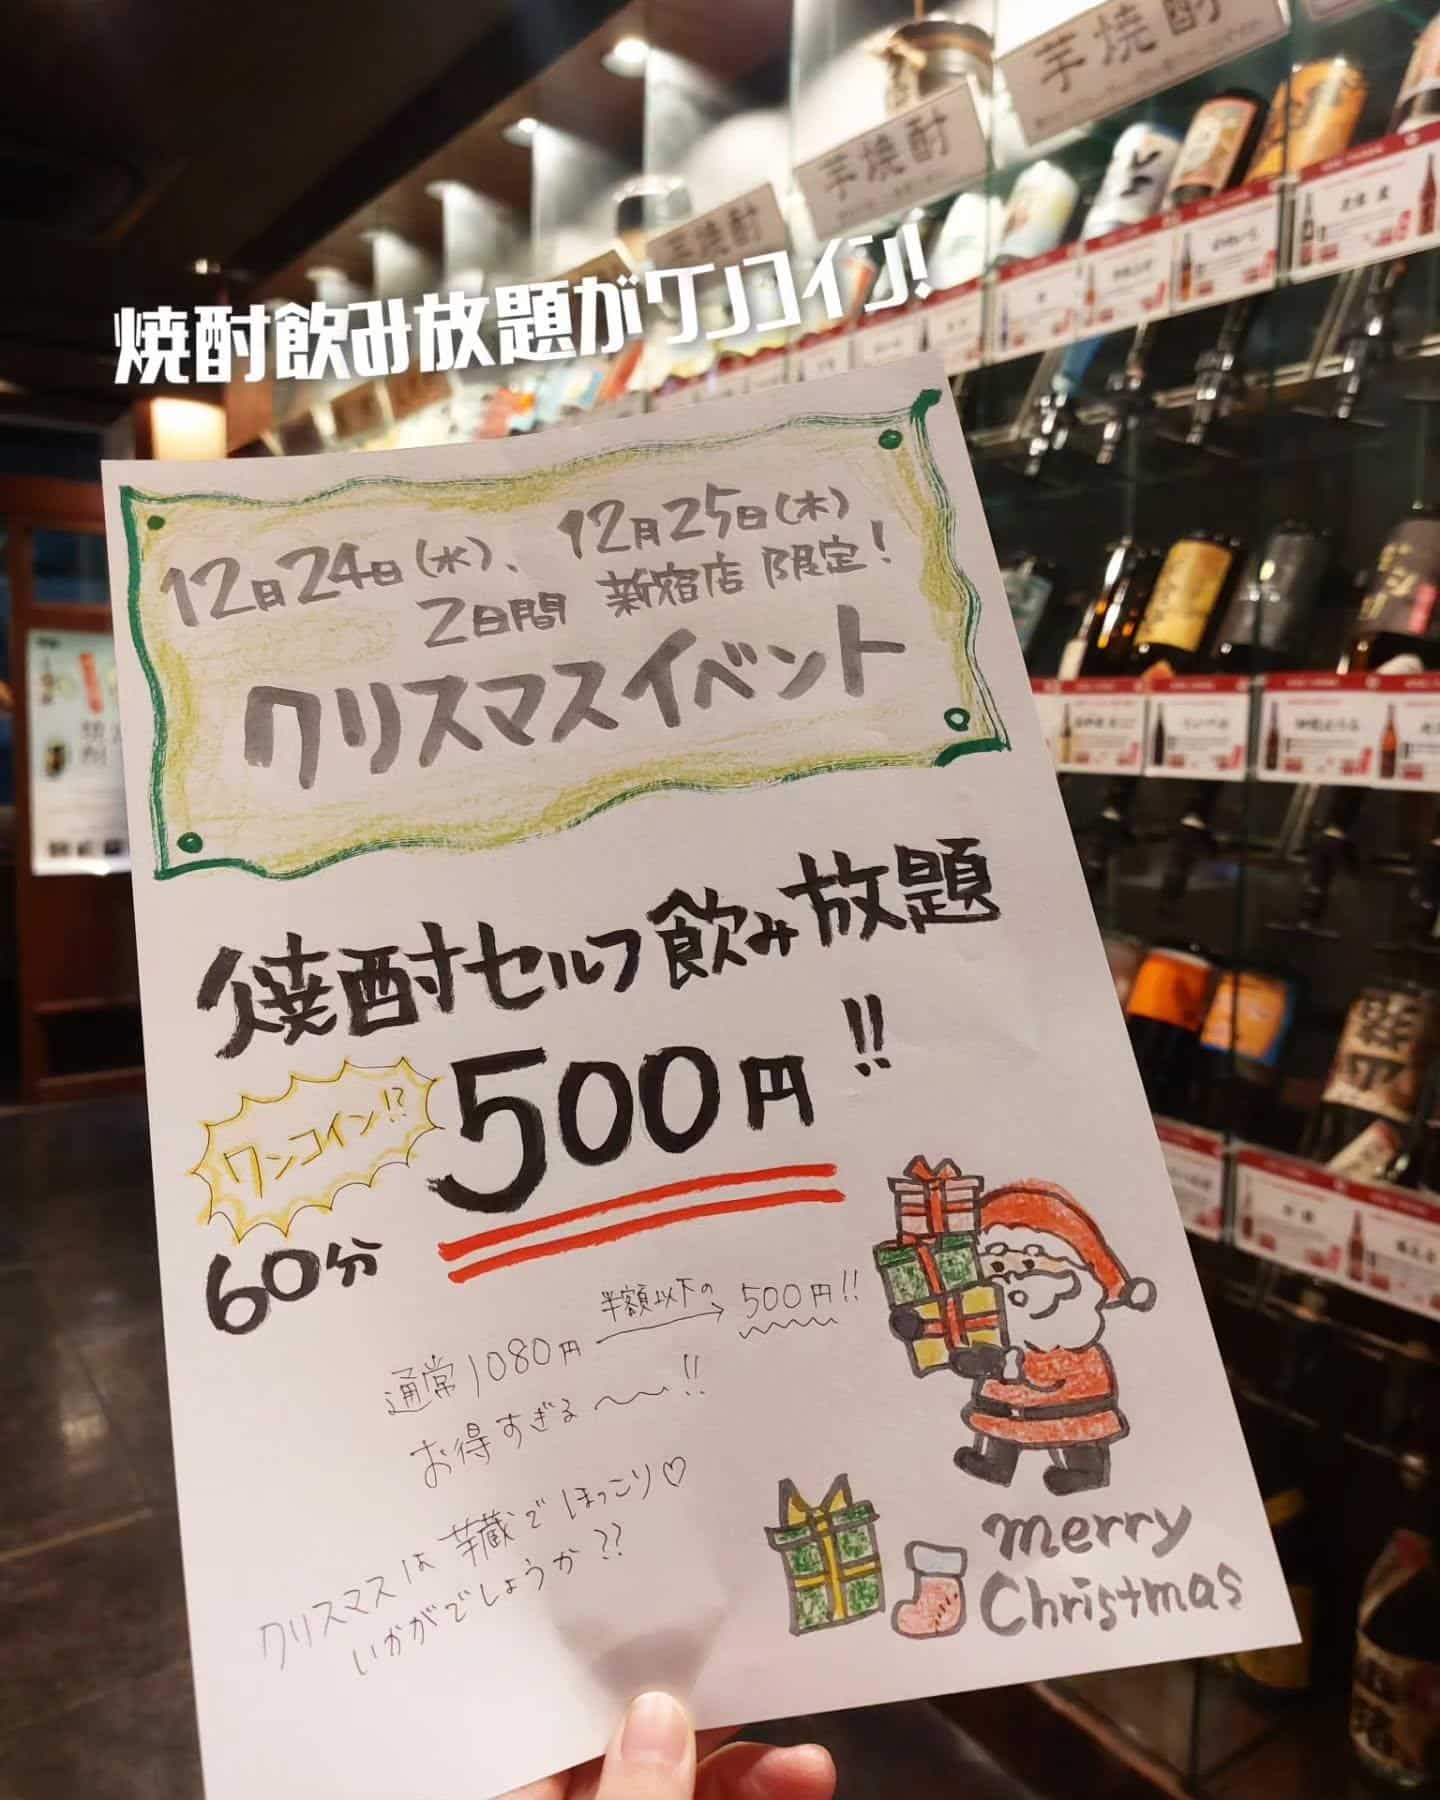 芋焼酎
芋焼酎
芋焼酎
焼酎飲み放題がワンコイン!
12月24日(水)、12月25日(木)
2日間 新宿店限定!
クリスマスイベント
焼酎セルフ飲み放題
ワンコイン!?
500円!!
60分
通常1080円 半額以下の→ 500円!!
お得すぎる〜〜!!
クリスマスは芋蔵でほっこり♡
いかがでしょうか??
merry
Christmas